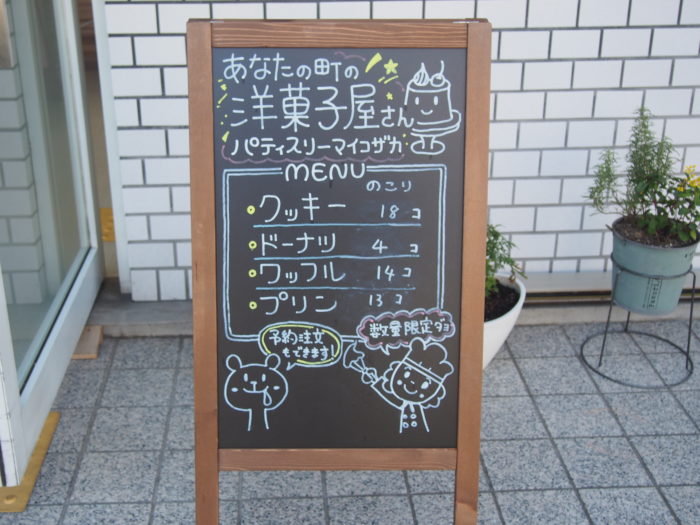 あなたの町の
洋菓子屋さん
パティスリーマイコザカ
MENU
のこり
クッキー 18コ
ドーナツ 4コ
ワッフル 14コ
プリン 13コ
予約注文
もできます!
数量限定ダョ